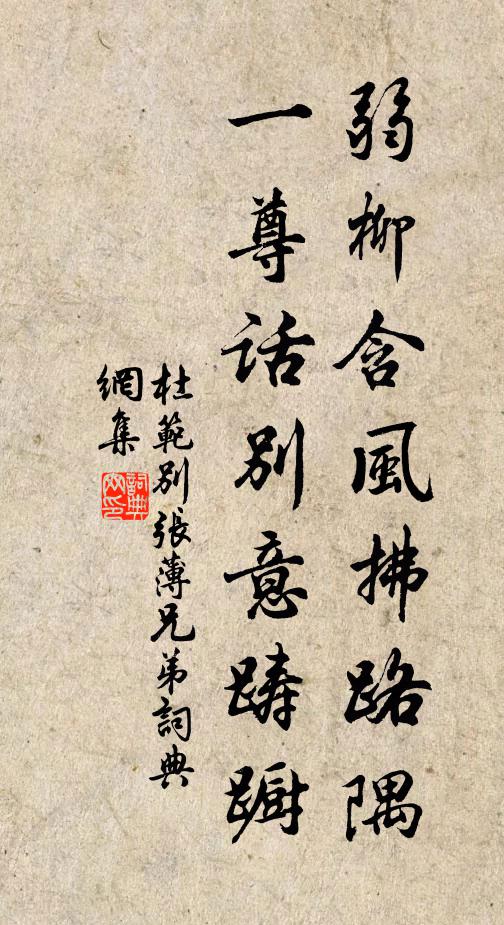 弱柳含風拂路隅
一尊话別意踌蹰
杜範別張薄兄弟詞典
網集
詞典
网印